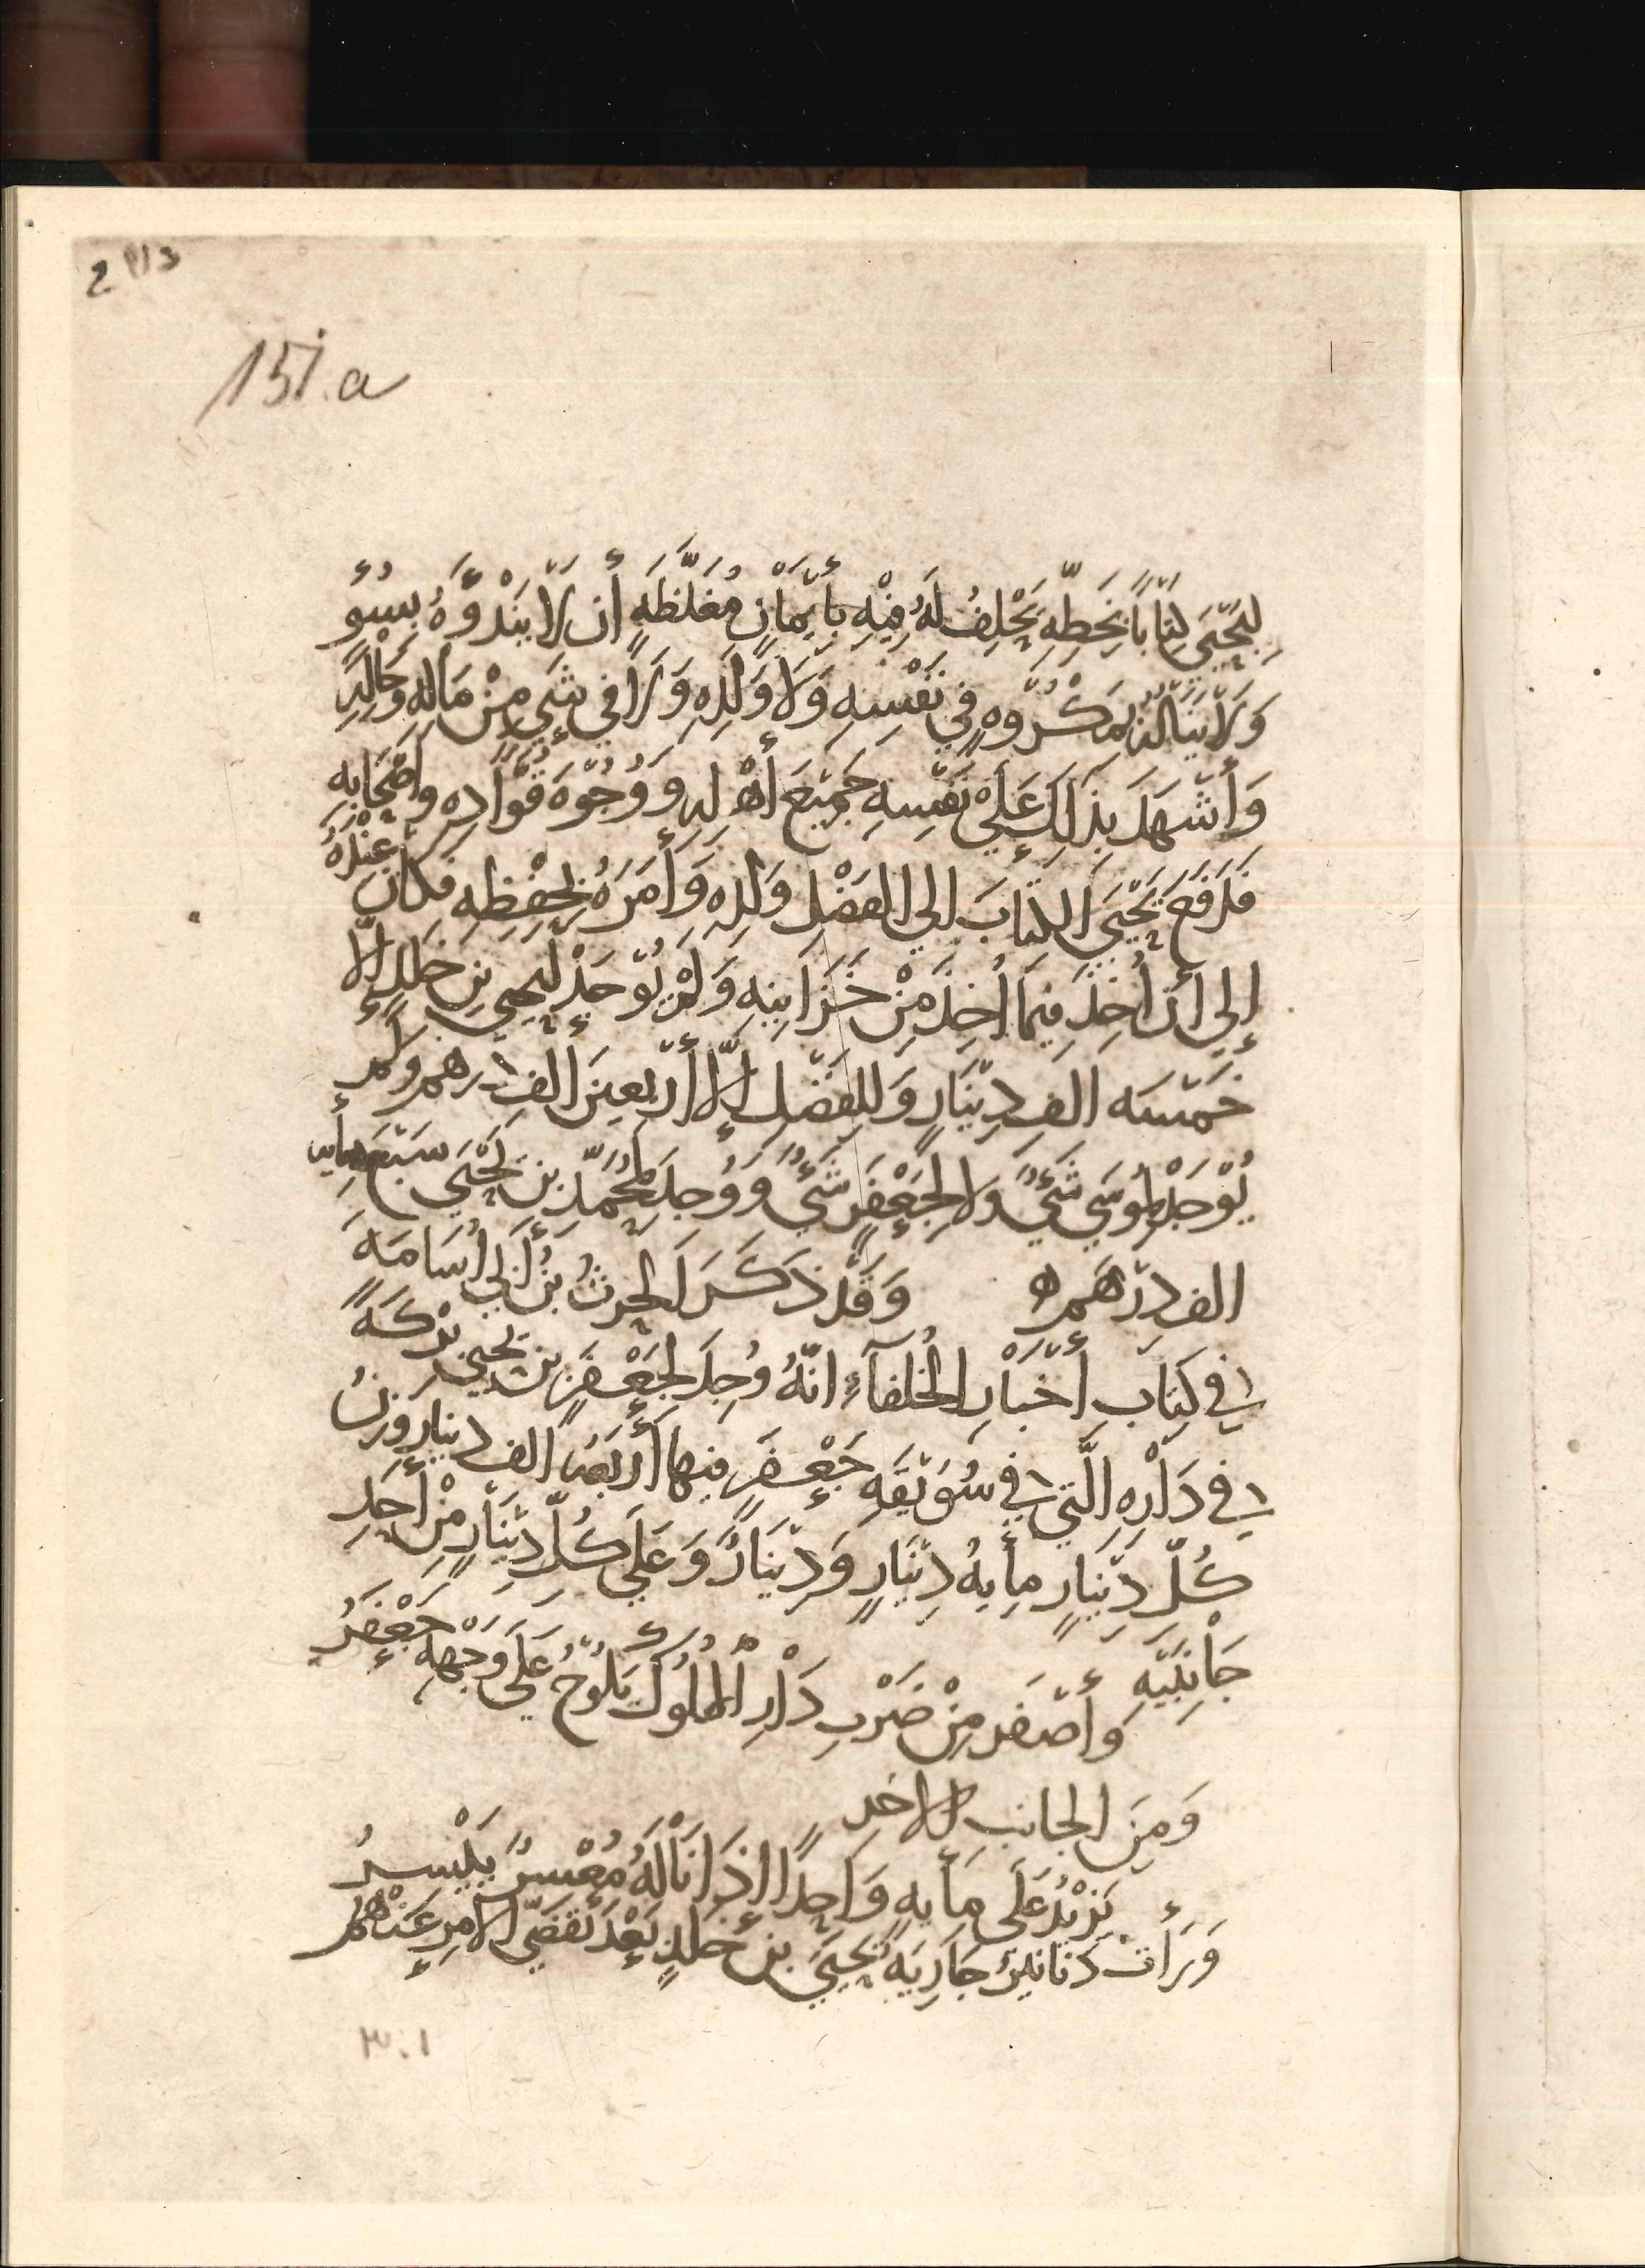 2 113
151.a
لِيَحْيَى كِتَابًا بِخَطِّهِ يَحْلِفُ لَهُ فِيْهِ بِأَيْمَانٍ مُغَلَّظَةٍ أَن لَا يَنْدَوَّهُ بِسُوءٍ
وَلَا يَنَالَهُ بِمَكْرُوهٍ فِي نَفْسِهِ وَلَا وَلَدِهِ وَلَا فِي شَيءٍ مِنْ مَالِهِ وَحَالِهِ
وَأَشْهَدَ بِذَلِكَ عَلَى نَفْسِهِ جَمِيْعَ أَهْلِهِ وَوُجُوْهَ قُوَّادِهِ وَأَصْحَابِهِ
فَدَفَعَ يَحْيَى الكِتَابَ إلى الفَضْلِ وَلَدِهِ وَأَمَرَهُ بِحِفْظِهِ فكَانَ عِنْدَهُ
إِلى أَن أُخِذَ فِيمَا أُخِذَ مِنْ خَزَايِنِهِ وَلَمْ يُوْجَدْ لِيَحيى بنِ خَلِدٍ إِلَّا
خَمْسَه الفِ دِيْنَارٍ وَلِلفَضْلِ إِلَّا أَرْبَعِينَ الفَ دِرهمٍ وَلَمْ
يُوْجَدْ لِمُوسَى شَيءٌ وَلا لِجَعْفَرٍ شَيءٌ وَوُجِدَ لِمُحَمَّدِ بنِ يَحْيَى سَبْعَ مِأيه
الف دِرْهَمٍ ه وَقَدْ ذَكَرَ الحرثُ بْنُ أَبِي أُسَامَهَ
فِي كِتَابِ أَخْبَارِ الخُلَفَآءِ انَّهُ وُجِدَ لِجَعْفَرِ بنِ يَحيى بِرْكَهً
فِي دَارِهِ الَّتِي فِي سُوَيْقَهِ جَعْفَرٍ فيها أَرْبَعَه الف دينارٍ وَزنُ
كُلِّ دِيْنَارٍ مِأيهُ دِيْنَارٍ وَدِيْنَارٌ وَعَلَى كُلِّ دِيْنَارٍ مِنْ أَحَدِ
جَانِبَيْهِ وَأَصْفَر مِنْ ضَرْبِ دَارِ المُلُوكِ يَلُوْحُ عَلَى وَجْهِهِ جَعْفَرُ
وَمِنَ الجانبِ الاخر
يَزِيْدُ عَلَى مِأيهٍ وَاحِدًا اذَا نَالَهُ مُعْسِرٌ يَيْسِرُ
وَرَأَت دَنَانِيرُ جَارِيَه يَحْيَى بنِ خَلدٍ بَعْدَ تَقَضِّي الأمرِ عَنْهُمْ
٣٠١